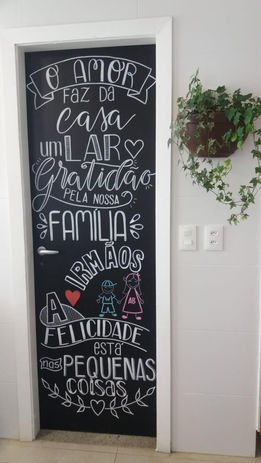 O AMOR
FAZ DA
casa
um LAR
Gratidão
PELA NOSSA
FAMÍLIA
IRMÃOS
A
FELICIDADE
está
nas
PEQUENAS
coisas